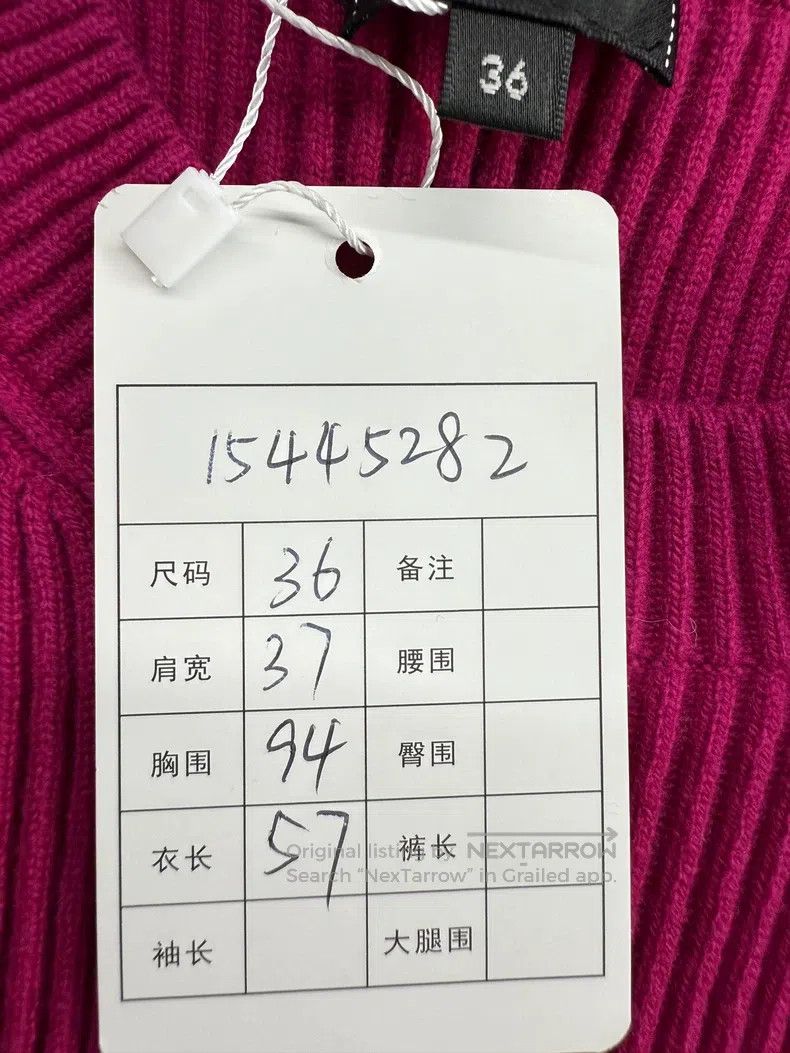 36
15445282
尺码 36 备注
肩宽 37 腰围
胸围 94 臀围
衣长 57 裤长
Original listing by NEXTARROW
Search "NexTarrow" in Grailed app.
袖长 大腿围